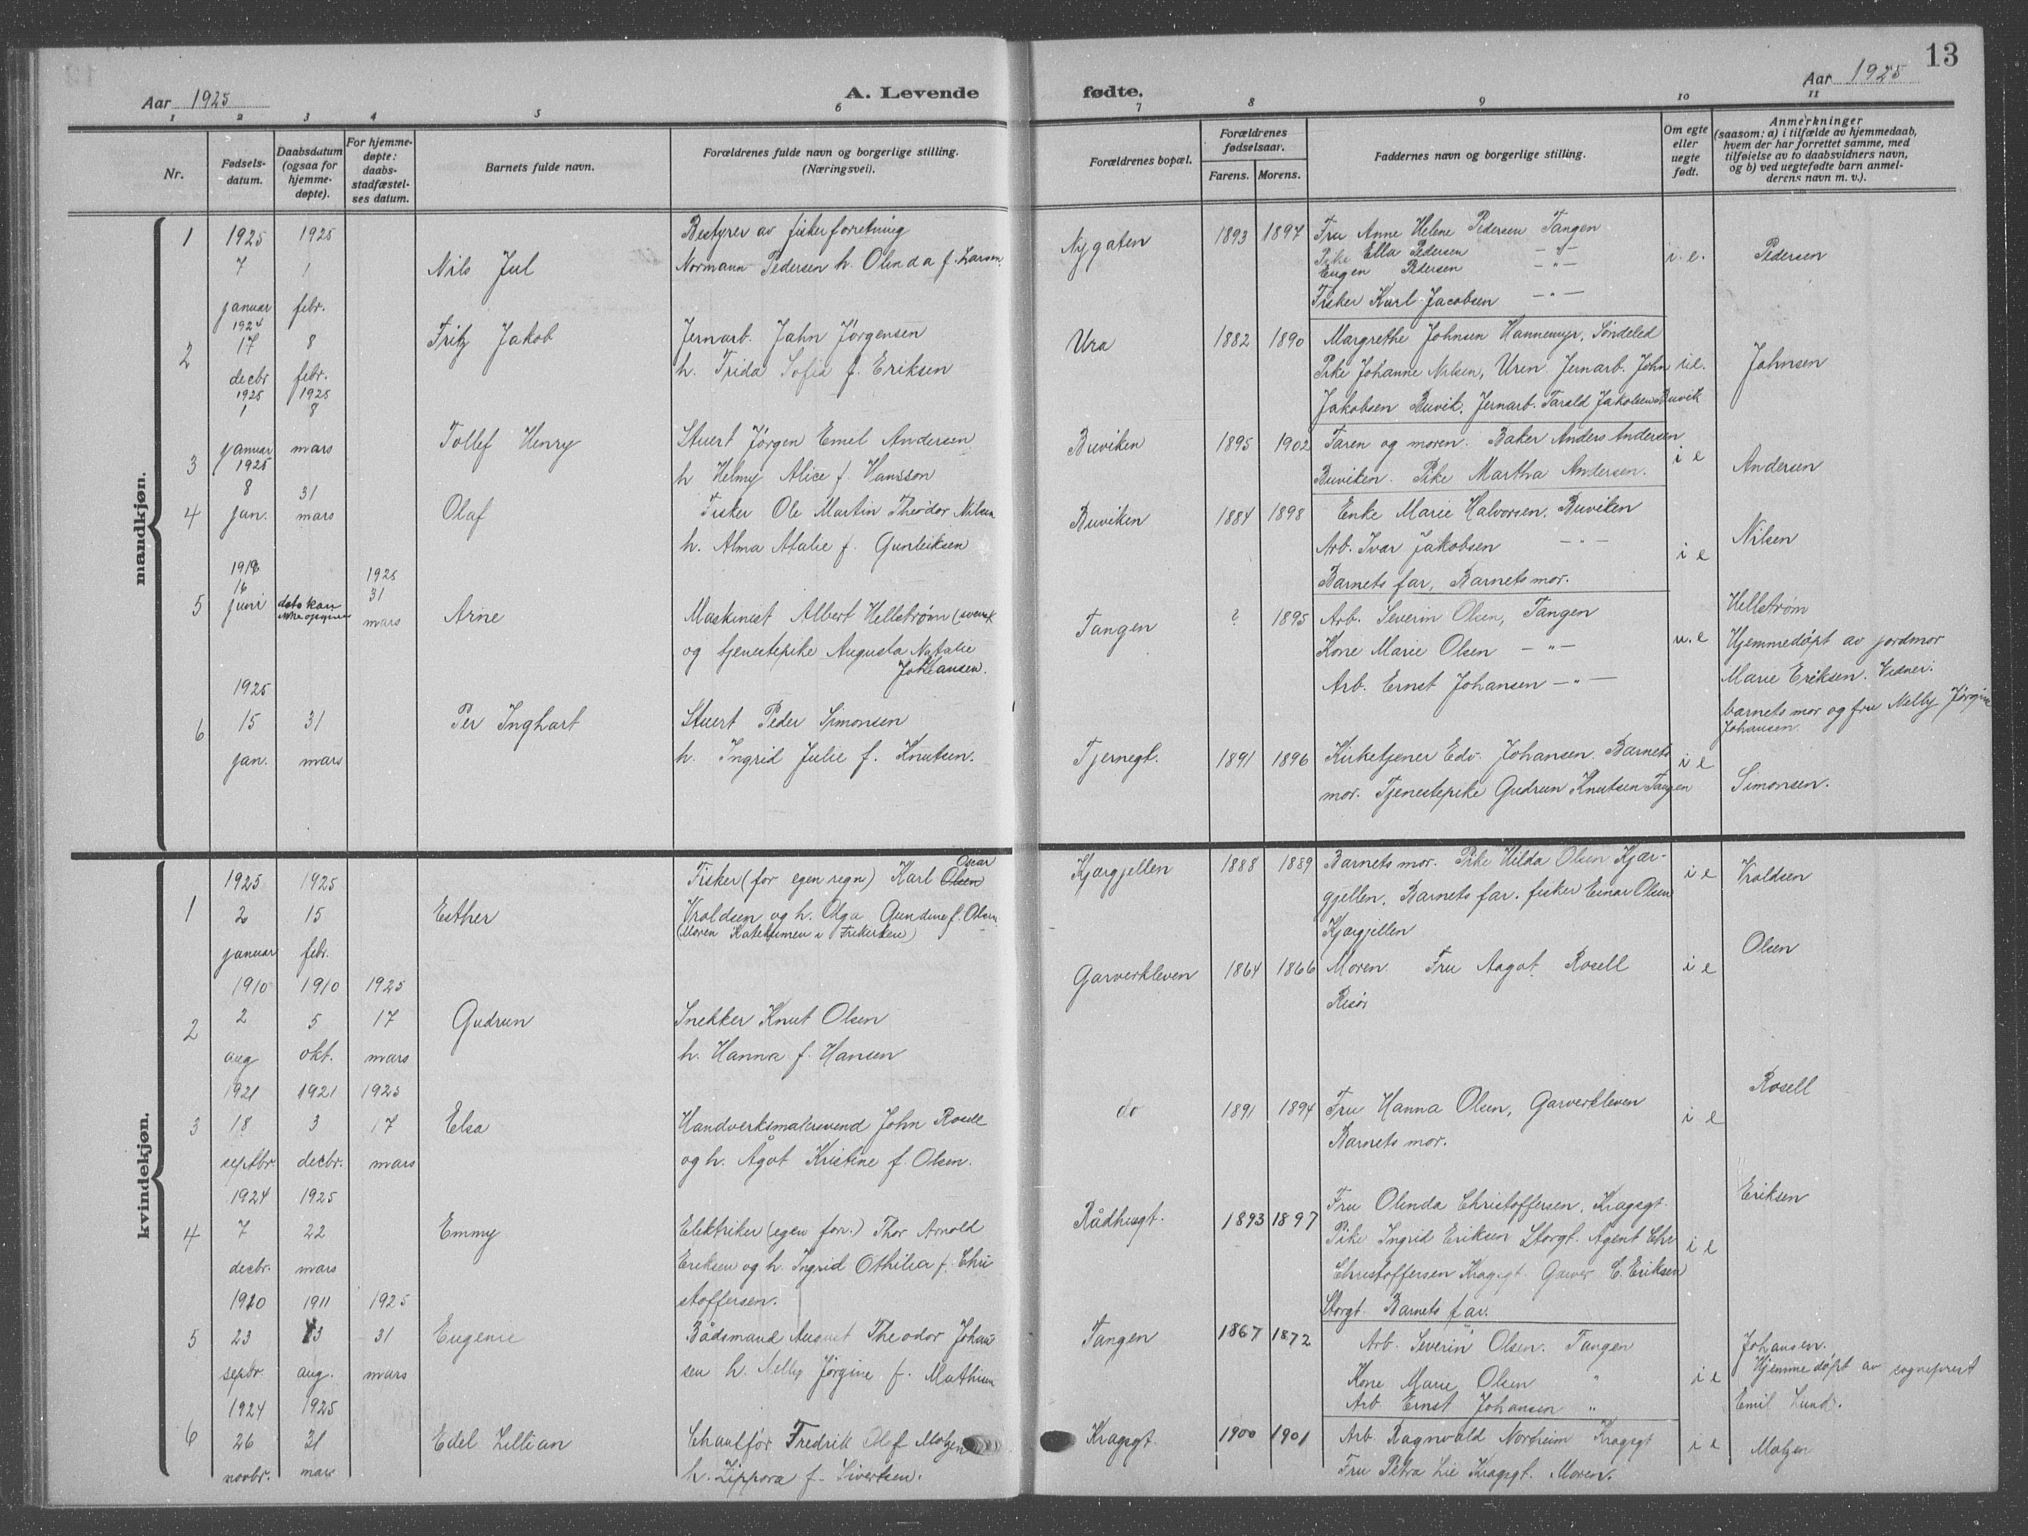 13
Aar 1925
A. Levende
fødte.
Aar 1925
1 2 3 4 5 6 7 8 9 10 11
Nr.
Fødsels-
datum.
Daabsdatum
(ogsaa for
hjemme-
døpte).
For hjemme-
døpte:
daabs-
stadfæstel-
ses datum.
Barnets fulde navn.
Forældrenes fulde navn og borgerlige stilling.
(Næringsvei).
Forældrenes bopæl.
Forældrenes
fødselsaar.
Farens. Morens.
Faddernes navn og borgerlige stilling.
Om egte
eller
uegte
født.
Anmerkninger
(saasom: a) i tilfælde av hjemmedaab,
hvem der har forrettet samme, med
tilføielse av to daabsvidners navn,
og b) ved uegtefødte barn anmel-
derens navn m. v.).
mandkjøn.
1
1925
7
januar
1925
1
febr.
Nils Jul
Bestyrer av fiskeforretning
Normann Pedersen h. Olinda f. Larsen
Nygaten
1893 1897
Fru Anne Helene Pedersen Tangen
Pike Ella Pedersen — " —
Eugen Pedersen — " —
Fisker Karl Jacobsen — " —
i. e.
Pedersen
2
1924
17
decbr
8
febr.
Fritz Jakob
Jernarb. Jahn Jørgensen
h. Frida Sofia f. Eriksen
Ura
1882 1890
Margrethe Johnsen Hannemyr, Søndeled
Pike Johanne Nilsen, Uren. Jernarb. John
Jakobsen Buvik. Jernarb. Tarald Jakobsen Buvik
i.e.
Johnsen
3
1925
1
januar
1925
8
mars
Tollef Henry
Stuert Jørgen Emel Andersen
h Helmy Alice f. Hansson
Buviken
1895 1902
Faren og moren. Baker Anders Andersen
Buviken. Pike Martha Andersen.
i e
Andersen
4
1925
8
jan.
31
mars
Olaf
Fisker Ole Martin Theodor Nilsen
h. Alma Atalie f. Gunleiksen
Buviken
1884 1898
Enke Marie Halvorsen, Buviken
Arb. Ivar Jakobsen — " —
Barnets far, Barnets mor.
i e
Nilsen
5
16
juni
dato kan
ikke opgives
1925
31
mars
Arne
Maskinist Albert Hellstrøm (svensk
og tjenestepike Augusta Natalie
Johansen.
Tangen
? 1895
Arb. Severin Olsen, Tangen
Kone Marie Olsen — " —
Arb. Ernst Johansen — " —
u. e
Hellstrøm
Hjemmedøpt av jordmor
Marie Eriksen. Vidner:
barnets mor og fru Nelly Jørgine
Johansen
6
1925
15
jan.
31
mars
Per Inghart
Stuert Peder Simonsen
h. Ingrid Julie f. Knutsen.
Tjernegt.
1891 1896
Kirketjener Edv. Johansen. Barnets
mor. Tjenestepike Gudrun Knutsen Tangen
i e
Simonsen.
kvindekjøn.
1
1925
2
januar
1925
15
febr.
Esther
Oscar
Fisker (for egen regn) Karl Olsen
Vroldsen og h. Olga Gundine f. Olsen
(Moren Katekumen i Frikirken)
Kjærgjellen
1888 1889
Barnets mor. Pike Hilda Olsen Kjær-
gjellen, Barnets far. fisker Einar Olsen
Kjærgjellen
i e
Vroldsen
2
1910
2
aug
1910
5
okt.
1925
17
mars
Gudrun
Snekker Knut Olsen
h. Hanna f. Hansen
Garverkleven
1864 1866
Moren. Fru Aagot Rosell
Risør
i e
Olsen
3
1921
18
septbr
1921
3
decbr.
1925
17
mars
Elsa
Handverksmalersvend John Rosell
og h. Ågot Kristine f. Olsen.
do
1891 1894
Fru Hanna Olsen, Garverkleven
Barnets mor.
i e
Rosell
4
1924
7
decbr.
1925
22
mars
Emmy
Elektriker (egen for.) Thor Arnold
Eriksen og h. Ingrid Othilia f. Chri
stoffersen.
Rådhusgt.
1893 1897
Fru Olinda Christoffersen, Kragsgt.
Pike Ingrid Eriksen Storgt. Agent Chr
Christoffersen Kragsgt. Garver C. Eriksen
Storgt. Barnets far.
i e
Eriksen
5
1910
23
septbr.
1911
13
aug.
1925
31
mars
Eugenie
Bådsmand August Theodor Johan
sen h. Nelly Jørgine f. Mathisen
Tangen
1867 1872
Arb. Severin Olsen. Tangen
Kone Marie Olsen "
Arb Ernst Johansen "
i e
Johansen.
Hjemmedøpt av sogneprest
Emil Lund.
6
1924
26
novbr.
1925
31
mars
Edel Lillian
Chauffør Fredrik Olef Molzen
h. Zippora f. Sivertsen.
Kragsgt.
1900 1901
Arb. Ragnvald Norheim Kragsgt
Fru Petra Lie Kragsgt. Moren.
i e
Molzen